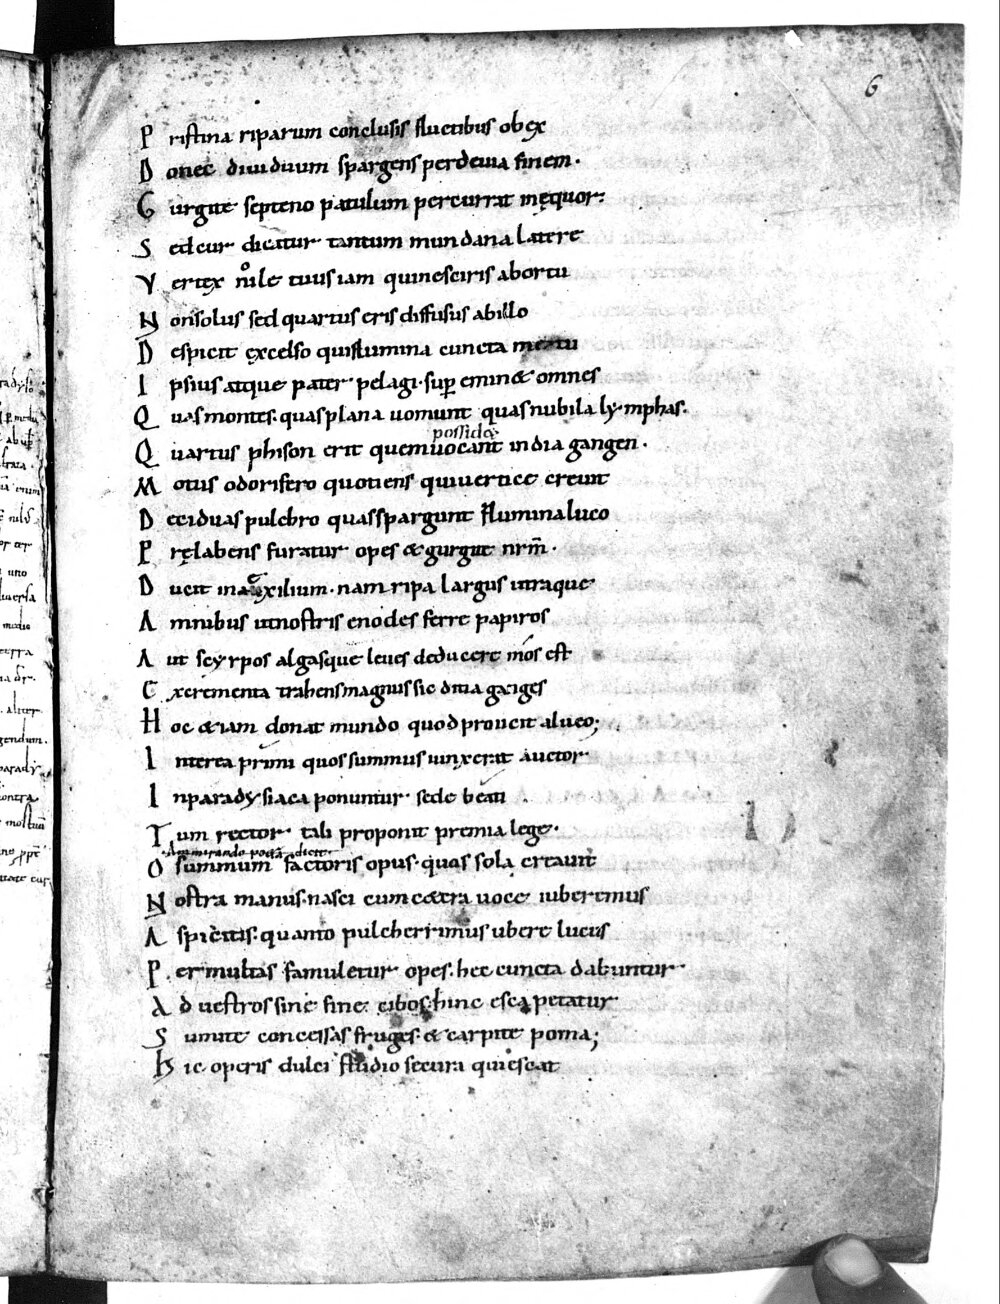 6
Pristina riparum conclusis fluctibus obex
Donec diuiduum spargens perdeuia finem.
Gurgite septeno patulum percurrat męquor:
Sed cur dicatur tantum mundana latere
Vertex nile tuus iam qui nesciris abortu
Non solus sed quartus eris diffusus ab illo
Despicit excelso qui flumina cuncta meatu
Ipsius atque pater pelagi. sup eminet omnes
Quas montes. quas plana uomunt quas nubila lymphas.
possidet
Quartus phison erit quem uocant india gangen.
Motus odorifero quotiens qui uertice creuit
Deciduas pulchro quas spargunt flumina luco
Prelabens furatur opes et gurgite nrm̄.
Ducit in exilium. nam ripa largus utraque
Amnibus ut nostris enodes ferre papiros
Aut scyrpos algasque leues deducere mos est
Excrementa trahens magnus sic ditia ganges
Hoc etiam donat mundo quod prouenit alueo;
Interea primi quos summus iunxerit auctor
In paradysiaca ponuntur sede beati
Tum rector tali proponit premia lege.
Ammirando poeta dicit
O summum factoris opus. quos sola creauit
Nostra manus. nasci cum cetera uoce iuberemus
Aspicitis. quanto pulcherrimus ubere lucus
Per multas famuletur opes. hec cuncta dabuntur
Ad uestros sine fine cibos. hinc esca petatur
Sumite concessas fruges. et carpite poma;
Hic operis dulci studio secura quiescat